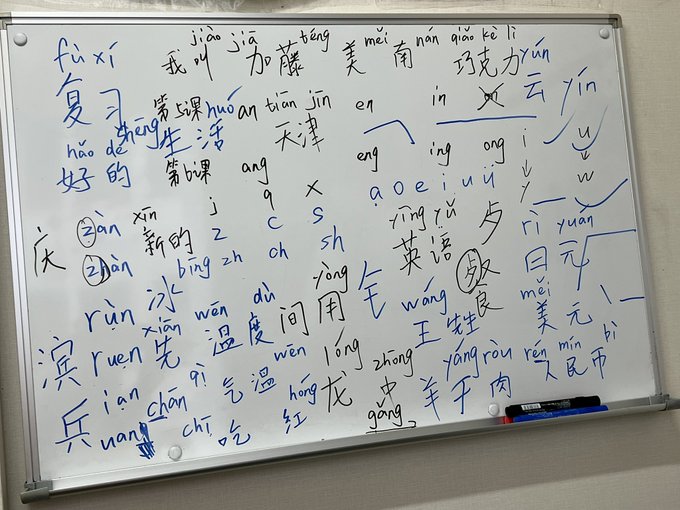 jiào jiā téng měi nán qiǎo kè lì
fù xí 我叫 加藤 美南 巧克力 yún
复习 第5课 huó an tiān jīn en in un 云 yín
shēng 生活 天津
hǎo de 第6课 ang eng ing ong i u
好的 j q x a o e i u ü y w
庆 zàn xīn 新的 z c s yīng yǔ 歹 rì yuán
zhàn bīng zh ch sh 英语 日元
rùn 冰 yòng 年 měi
xiān wēn dù 间用 wáng 良 美元
滨 ruen 先 温度 王 牲
ian qì wēn lóng zhōng yáng ròu rén mín bì
兵 uan chān 气温 hóng 龙 中 羊 肉 人民币
chī 吃 红 gǎng 干